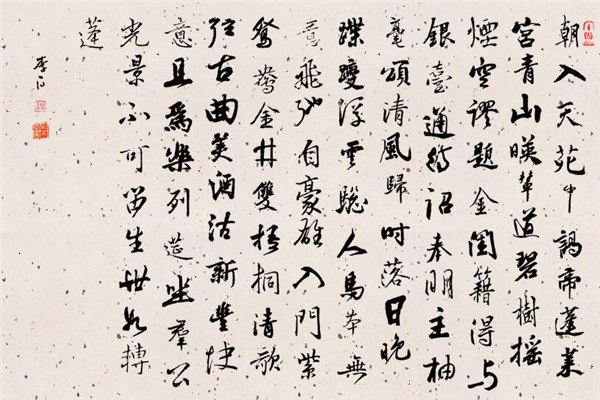 朝入天苑中謁帝蓬萊
宮青山暎輦道碧樹搖
煙空謬題金閨籍得與
銀臺通待詔奉明主抽
毫頌清風歸時落日晚
蹀躞浮雲驄人馬本無
意飛馳自豪雄入門紫
鴛鴦金井雙梧桐清歌
弦古曲美酒沽新豐快
意且爲樂列筵坐羣公
光景不可留生世如轉
蓬
李白